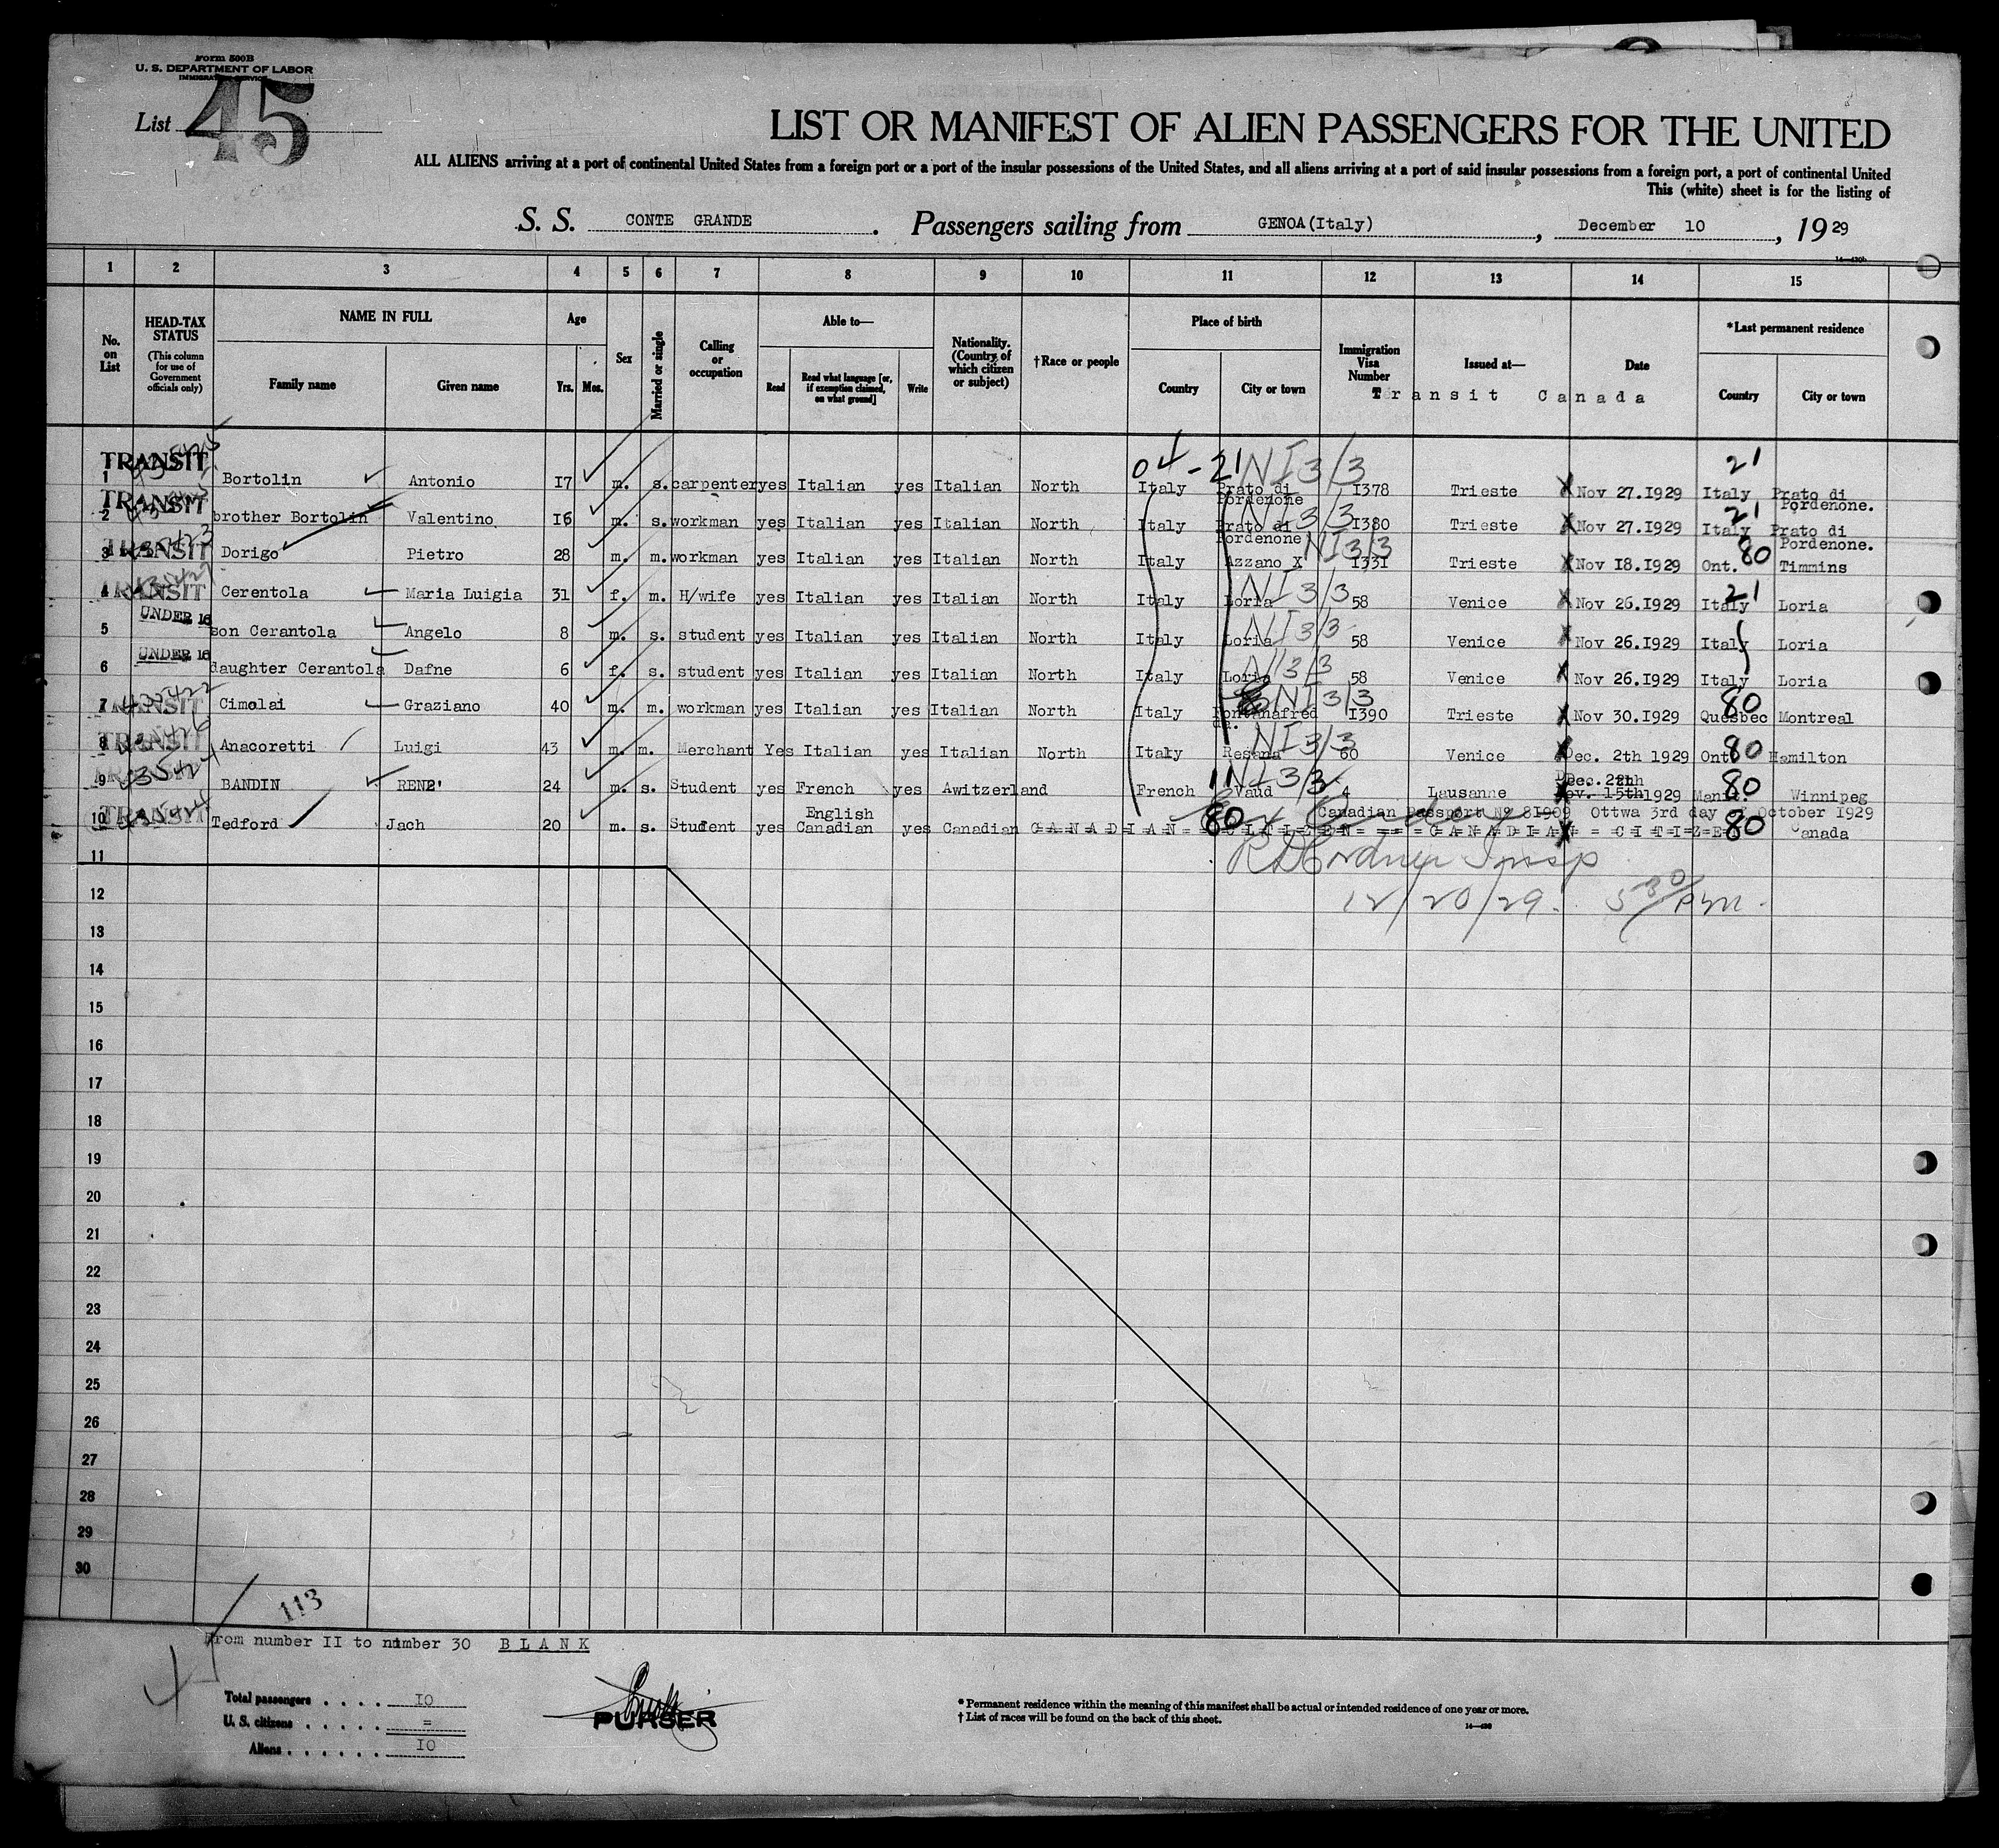 Form 500B
U. S. DEPARTMENT OF LABOR
IMMIGRATION SERVICE
List 45
LIST OR MANIFEST OF ALIEN PASSENGERS FOR THE UNITED
ALL ALIENS arriving at a port of continental United States from a foreign port or a port of the insular possessions of the United States, and all aliens arriving at a port of said insular possessions from a foreign port, a port of continental United
This (white) sheet is for the listing of
S. S. CONTE GRANDE. Passengers sailing from GENOA(Italy), December 10, 1929
14—430b
1 2 3 4 5 6 7 8 9 10 11 12 13 14 15
No. on List
HEAD-TAX STATUS (This column for use of Government officials only)
NAME IN FULL Family name Given name
Age Yrs. Mos.
Sex
Married or single
Calling or occupation
Able to— Read Read what language [or, if exemption claimed, on what ground] Write
Nationality. (Country of which citizen or subject)
†Race or people
Place of birth Country City or town
Immigration Visa Number
Issued at—
Date
Transit Canada
*Last permanent residence Country City or town
04-21 NI3/3 21
TRANSIT 1 Bortolin Antonio 17 m. s. carpenter yes Italian yes Italian North Italy Prato di Pordenone 1378 Trieste Nov 27.1929 Italy Prato di Pordenone.
TRANSIT 2 brother Bortolin Valentino 16 m. s. workman yes Italian yes Italian North Italy Prato di Pordenone 3/3 1380 Trieste Nov 27.1929 Italy 21 Prato di Pordenone.
TRANSIT 3 Dorigo Pietro 28 m. m. workman yes Italian yes Italian North Italy Azzano X NI3/3 1331 Trieste Nov 18.1929 Ont. 80 Timmins
TRANSIT 4 Cerentola Maria Luigia 31 f. m. H/wife yes Italian yes Italian North Italy Loria NI3/3 58 Venice Nov 26.1929 Italy 21 Loria
UNDER 16 5 son Cerantola Angelo 8 m. s. student yes Italian yes Italian North Italy Loria NI3/3 58 Venice Nov 26.1929 Italy Loria
UNDER 16 6 daughter Cerantola Dafne 6 f. s. student yes Italian yes Italian North Italy Loria NI3/3 58 Venice Nov 26.1929 Italy Loria
TRANSIT 7 Cimolai Graziano 40 m. m. workman yes Italian yes Italian North Italy NI3/3 1390 Trieste Nov 30.1929 Quesbec 80 Montreal
TRANSIT 8 Anacoretti Luigi 43 m. m. Merchant Yes Italian yes Italian North Italy Resana NI3/3 60 Venice Dec. 2th 1929 Ont 80 Hamilton
TRANSIT 9 BANDIN RENE' 24 m. s. Student yes French yes Awitzerland French 11 Vaud NI3/3 4 Lausanne Dec. 2th Nov. 15th 1929 Manit. 80 Winnipeg
TRANSIT 10 Tedford Jach 20 m. s. Student yes English Canadian yes Canadian CANADIAN = CITIZEN = = = CANADIAN = CITIZEN 80 Canada
Canadian Passport No 81909 Ottwa 3rd day October 1929
80
11
12
12/20/29. 5 30/ P.m.
13
14
15
16
17
18
19
20
21
22
23
24
25
26
27
28
29
30
113
From number II to number 30 BLANK
Total passengers . . . . 10
U. S. citizens . . . . . =
Aliens . . . . . . 10
PURSER
* Permanent residence within the meaning of this manifest shall be actual or intended residence of one year or more.
† List of races will be found on the back of this sheet.
14—430